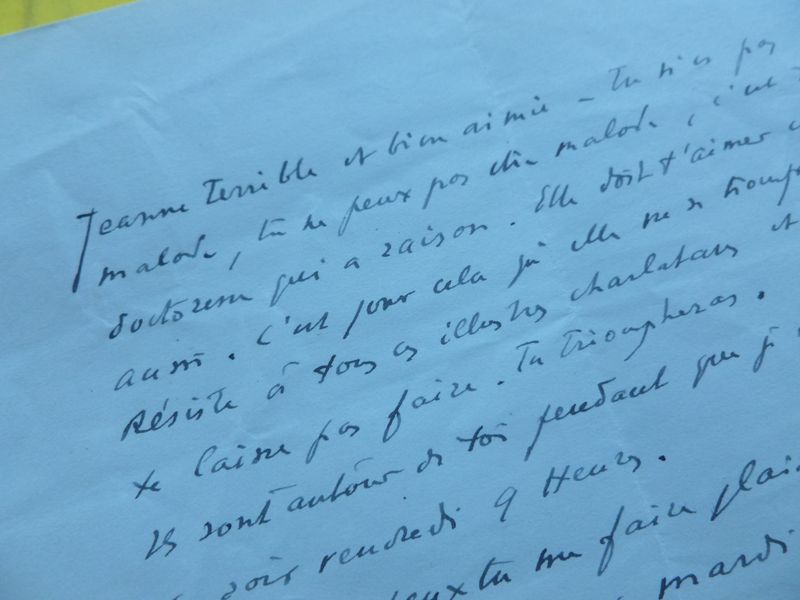 Jeanne Terrible et bien aimée – Tu n'es pas
malade, tu ne peux pas être malade, c'est
doctoresse qui a raison. Elle doit t'aimer
aussi. C'est pour cela qu'elle ne se trompe
Résiste à tous ces illustres charlatans et
te laisse pas faire. Tu triompheras.
Ils sont autour de toi pendant que je
soir vendredi 9 Heures.
veux tu me faire plaisi
mardi